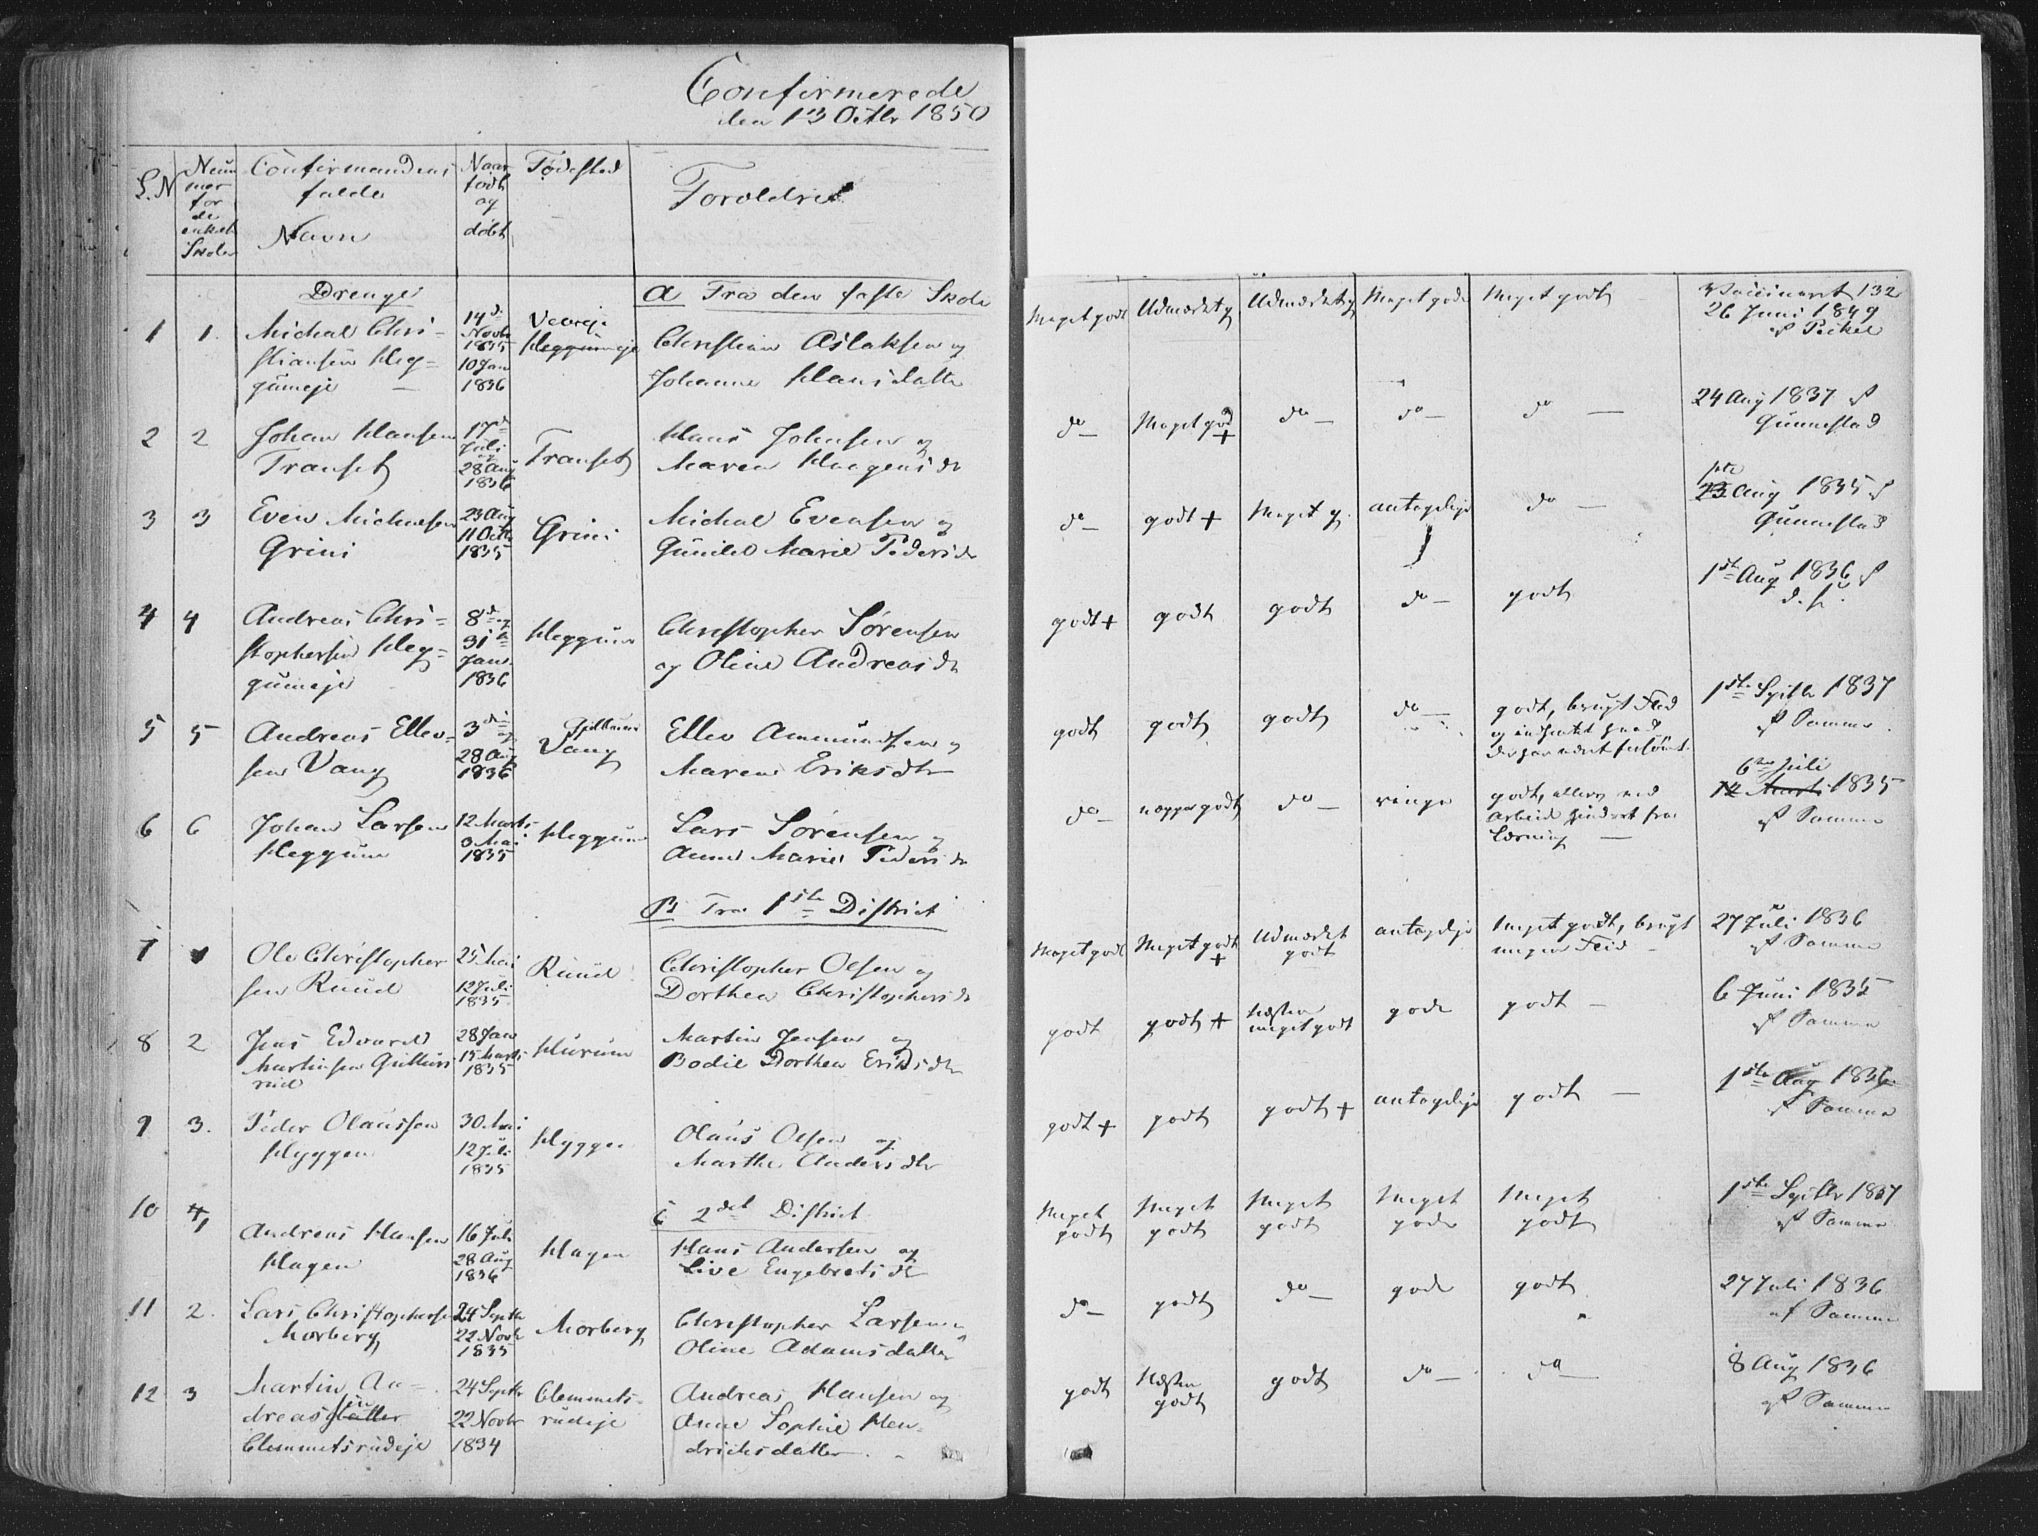 Confirmerede
den 13 Octbr 1850
L.N
Num
mer
for
de
enkelte
Skoler
Confirmandens
fulde
Navn
Naar
født
og
døbt
Fødested
Forældre
Drenge
A Fra den faste Skole
1 1. Michal Chri-
stiansen Heg-
gumeje
14de
Novbr
1835
10 Jan
1836
Veareje
Heggumeje
Christian Aslaksen og
Johanne Hansdatter
Meget godt Udmærket g Udmærket g Meget gode Meget godt
Vaccineret 132
26 Juni 1849
af Pickel
2 2 Johan Hansen
Transet
17de
Juli
og
28 Aug
1836
Transet
Hans Johnsen og
Maren Haagensdr
do Meget god + do do do
24 Aug 1837 af
Gunnestad
3 3 Even Michelsen
Grini
23 Aug
11 Octb
1835
Grini
Michal Evensen og
Gunild Marie Pedersdr
do godt + Meget g. antagelige do
23 Aug 1835 af
Gunnestad
4 4 Andreas Chri-
stophersen Heg-
gumeje
8de og
31te
Janr
1836
Heggum
Christopher Sørensen
og Oline Andreasdr
godt + godt godt do godt
1ste Aug 1836 af
d. s.
5 5 Andreas Ellev-
sen Vang
3die og
28 Aug
1836
Vang
Ellev Amundsen og
Maren Eriksdtr
godt godt godt do
godt, brugt Flid
og indhentet hvad
der har været forsømt.
1ste Septbr 1837
af Samme
6 6 Johan Larsen
Heggum
12 Marts
3 Mai
1835
Heggum
Lars Sørensen og
Anne Marie Pedersdr
do neppe godt do ringe
godt, ellers ved
Arbeide hindret fra
Læsning
6te Juli
14 Marts 1835
af Samme
B Fra 1ste District
7 1 Ole Christopher
sen Ruud
25 Mai
12 Juli
1835
Ruud
Christopher Olsen og
Dorthea Christophersdr
Meget godt Meget godt + Udmærket godt antagelige
Meget godt, brugt
megen Flid
27 Juli 1836
af Samme
8 2 Jens Edvard
Martinsen Gullers
rud
28 Jan
15 Marts
1835
Hurum
Martin Jensen og
Bodil Dorthea Eriksdtr
godt godt + Næsten meget godt gode godt
6 Juni 1835
af Samme
9 3. Peder Olaussen
Hyggen
30 Mai
12 Juli
1835
Hyggen
Olaus Olsen og
Marthe Andersdtr
godt + godt godt + antagelige godt
1ste Aug 1836
af Samme
C 2det District
10 4 Andreas Hansen
Hagen
16 Juli
28 Aug
1836
Hagen
Hans Andersen og
Live Engebretsdtr
Meget godt Meget godt Meget godt Meget gode Meget godt
1ste Septbr 1837
af Samme
11 2. Lars Christophersen
Morberg
24 Septbr
22 Novbr
1835
Morberg
Christopher Larsen og
Oline Adamsdatter
do godt do gode godt
27 Juli 1836
af Samme
12 3 Martin An-
dreassen
Clemmetsrudeje
24 Septbr
22 Novbr
1834
Clemmets-
rudeje
Andreas Hansen og
Anne Sophie Hen-
drichsdatter
godt Næsten godt godt do do
8 Aug 1836
af Samme